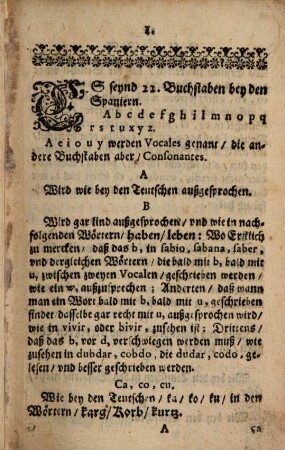 1.
ES seynd 22. Buchstaben bey den
Spaniern.
A b c d e f g h i l m n o p q
r s t u x y z.
A e i o u y werden Vocales genant / die an-
dere Buchstaben aber / Consonantes.
A
Wird wie bey den Teutschen außgesprochen.
B
Wird gar lind außgesprochen / vnd wie in nach-
folgenden Wörtern / haben / leben: Wo Erstlich
zu mercken / daß das b, in sabio, sabana, saber,
vnd dergleichen Wörtern / die bald mit b, bald mit
u, zwischen zweyen Vocalen / geschrieben werden /
wie ein w, außzusprechen; Anderten / daß wann
man ein Wort bald mit b, bald mit u, geschrieben
findet dasselbe gar recht mit u, außgesprochen wird /
wie in vivir, oder bivir, zusehen ist; Drittens /
daß das b, vor d, verschwiegen werden muß / wie
zusehen in dubdar, cobdo, die dudar, codo, ge-
lesen / vnd besser geschrieben werden.
Ca, co, cu.
Wie bey den Teutschen / ka / ko / ku / in den
Wörtern / karg / Korb / kurtz.
A